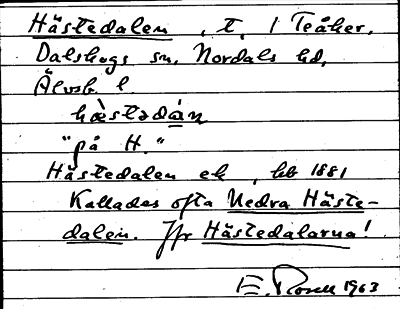 Hästedalen, t, 1 Teåker,
Dalskogs sn, Nordals hd,
Älvsb. l.
hæ̀stədán
"på H."
Hästedalen ek, hb 1881
Kallades ofta Nedra Häste-
dalen. Jfr Hästedalarna!
E. Rosell 1963